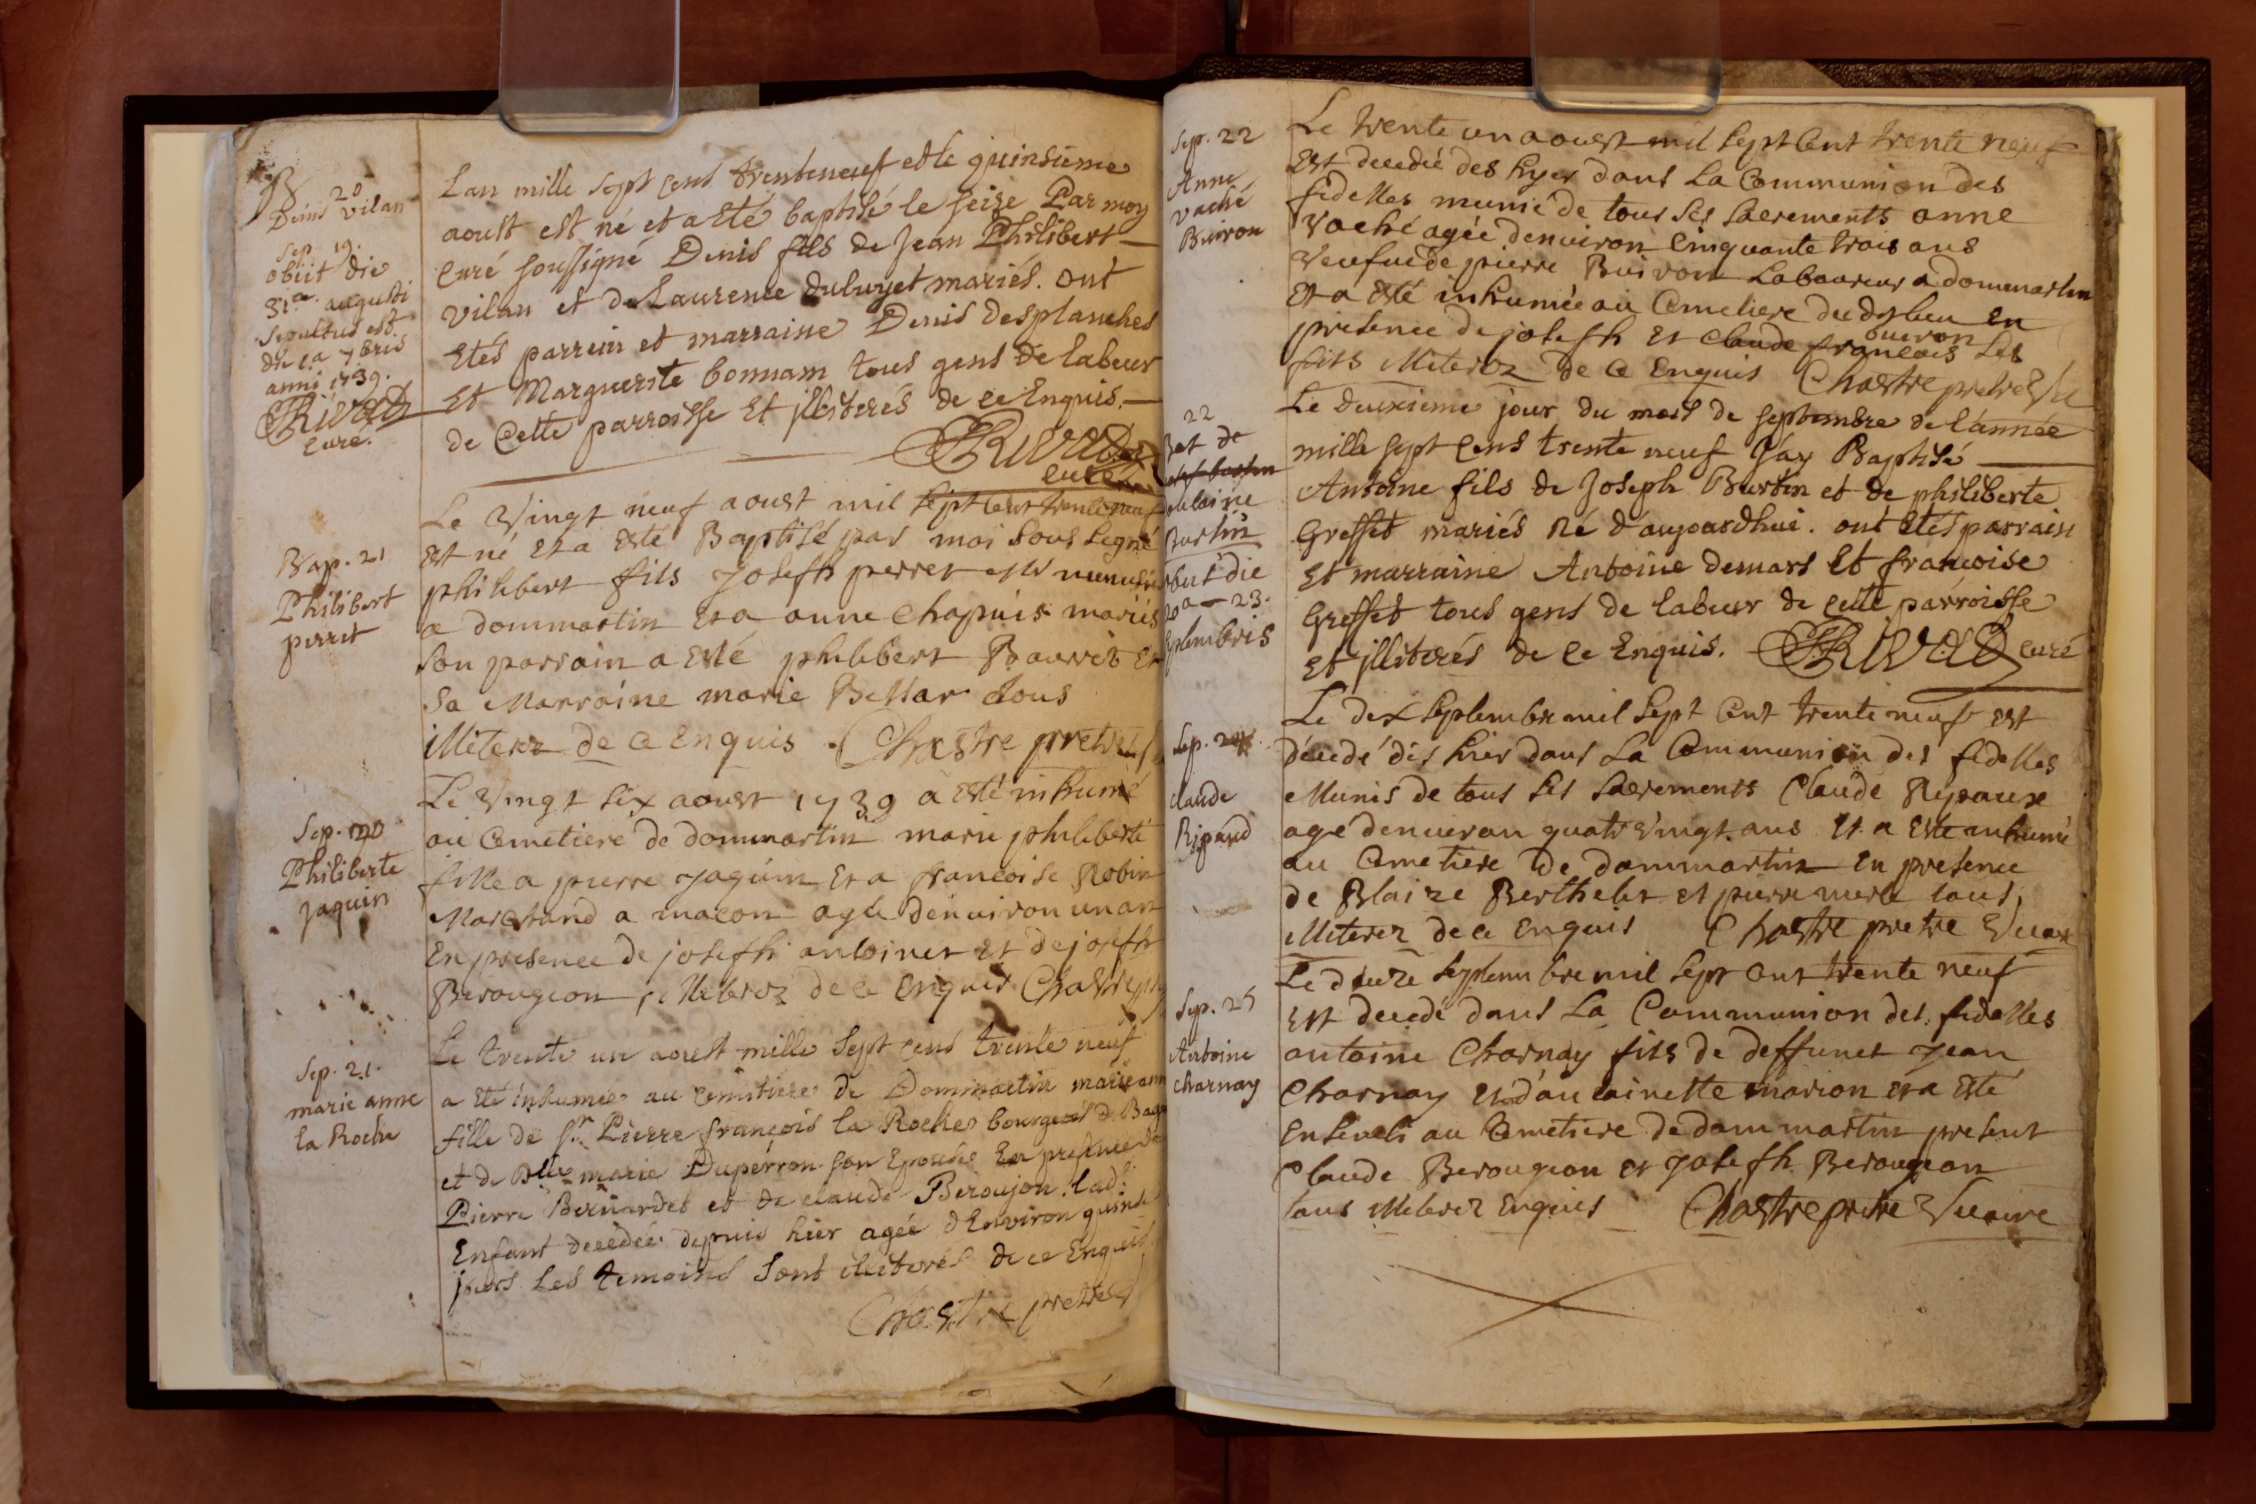 B 20
Denis Vilan
Sep. 19.
obiit die
31a. augusti
Sepultus est
die 1a 7bris
anni 1739.
Rivat
curé.
Lan mille sept cens trenteneuf et le quinsieme
aoust est né et a eté baptisé le seize Par moy
curé soussigné Denis fils de Jean Philibert
vilan et de Laurence duluyet mariés. ont
etés parrein et marraine Denis desplanches
et Marguerite bonnam tous gens de labeur
de cette parroisse et illiterés de ce Enquis.
Rivat
curé
Bap. 21
Philibert
perret
Le Vingt neuf aoust mil sept cent trente neuf
est né et a esté Baptisé par moi sous signé
philibert fils Joseph perret
a dommartin et a anne chapuis mariés
son parrain a esté philibert Bauvet et
sa Marraine marie Bellar tous
illiterez de ce enquis. Chastre pretre
Sep. 20
Philiberte
Jaquin
Le Vingt six aoust 1739 a esté inhumé
au Cemetiere de dommartin marie philiberte
fille a pierre Jaquin et a francoise Robin
Marchand a macon agée denviron un an
En presence de joseph antoinet et de joseph
Berougeon illiterez de ce enquis Chastre
Sep. 21.
marie anne
la Roche
Le trente un aoust mille sept cens trente neuf
a eté inhumée au cemitiere de Dommartin marie anne
fille de sr. Pierre françois la Roche bourgeois de Bage
et de Dlle marie Duperron son Epouse En presence de
Pierre Bernardet et de claude Beroujon. lad.
Enfant decedée depuis hier agée d'Environ quinse
jours les temoins sont illiterés de ce Enquis
Chastre pretre
Sep. 22
Anne
vaché
Buiron
Le trente un aoust mil sept cent trente neuf
est decedée des hyer dans la Communion des
fidelles munie de tous ses sacrements anne
Vaché agée denviron cinquante trois ans
Veufue de pierre Buiron Laboureur a dommartin
et a esté inhumée au Cemetiere dud lieu en
presence de joseph et claude francois bueron ses
fils illiterez de ce enquis Chastre pretre
22
Bat de
Antoine
Burtin
obiit die
20a - 23.
septembris
Le deuxieme jour du mois de septembre de l'année
mille sept cens trente neuf J'ay Baptisé
Antoine fils de Joseph Burtin et de philiberte
Greffet mariés né d'aujourdhui. ont etés parrain
et marraine Antoine demars et françoise
Greffet tous gens de labeur de cette parroisse
et illiterés de ce Enquis. Rivat curé
Sep. 24
claude
Ripaud
Le dix septembre mil sept cent trente neuf est
décedé dés hier dans la Communion des fidelles
Munis de tous ses sacrements Claude Ripaux
agé denviron quatre vingt ans et a esté inhumé
au Cemetiere de dommartin en presence
de Blaize Berthelet et pierre merle tous
illiterez de ce enquis Chastre pretre Vicaire
Sep. 25
Antoine
charnay
Le douze septembre mil sept cent trente neuf
est decedé dans la Communion des fidelles
antoine Charnay fils de deffunct Jean
Charnay et d'antoinette marion et a esté
enseveli au Cemetiere de dommartin present
Claude Berougeon et joseph Berougeon
tous illiterez enquis Chastre pretre Vicaire